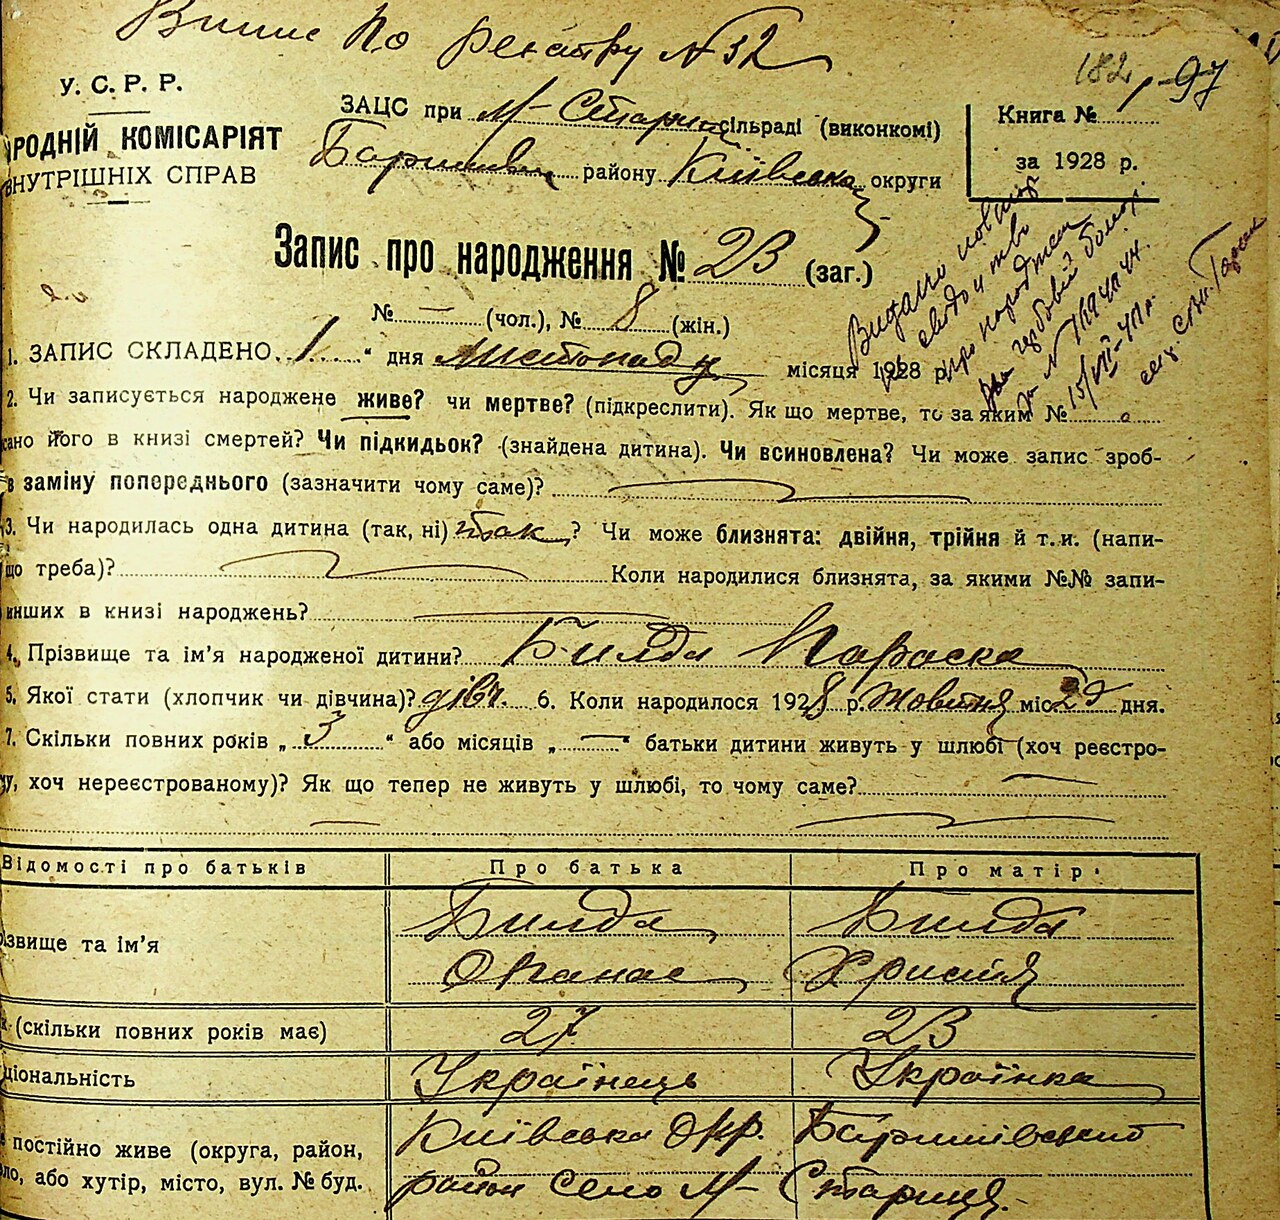 Випис по реєстру № 32
182
1-97
У. С. Р. Р.
РОДНІЙ КОМІСАРІЯТ
ВНУТРІШНІХ СПРАВ
ЗАЦС при М-Стариц. сільраді (виконкомі)
Баришівськ. району Київської округи
Книга №
за 1928 р.
Запис про народження № 23 (заг.)
№ — (чол.), № 8 (жін.)
Видано повтор
свідоцтво
про народжен
за № 1194044.
15/VII-41р.
1. ЗАПИС СКЛАДЕНО „1“ дня листопаду місяця 1928 р.
2. Чи записується народжене живе? чи мертве? (підкреслити). Як що мертве, то за яким №
сано його в книзі смертей? Чи підкидьок? (знайдена дитина). Чи всиновлена? Чи може запис зроб-
в заміну попереднього (зазначити чому саме)?
3. Чи народилась одна дитина (так, ні) так? Чи може близнята: двійня, трійня й т. и. (напи-
що треба)? Коли народилися близнята, за якими №№ запи-
инших в книзі народжень?
4. Прізвище та ім’я народженої дитини? Билда Параска
5. Якої стати (хлопчик чи дівчина)? дівч. 6. Коли народилося 1928 р. Жовтня міс. дня.
7. Скільки повних років „ 3 “ або місяців „ — “ батьки дитини живуть у шлюбі (хоч реєстро-
у, хоч нереєстрованому)? Як що тепер не живуть у шлюбі, то чому саме? —
Відомості про батьків Про батька Про матір.
ізвище та ім’я Билда Опанас Билда Христя
(скільки повних років має) 27 23
ціональність Українець Українка
постійно живе (округа, район, Київська окр. Баришівський
ло, або хутір, місто, вул. № буд. район Село М-Стариця.